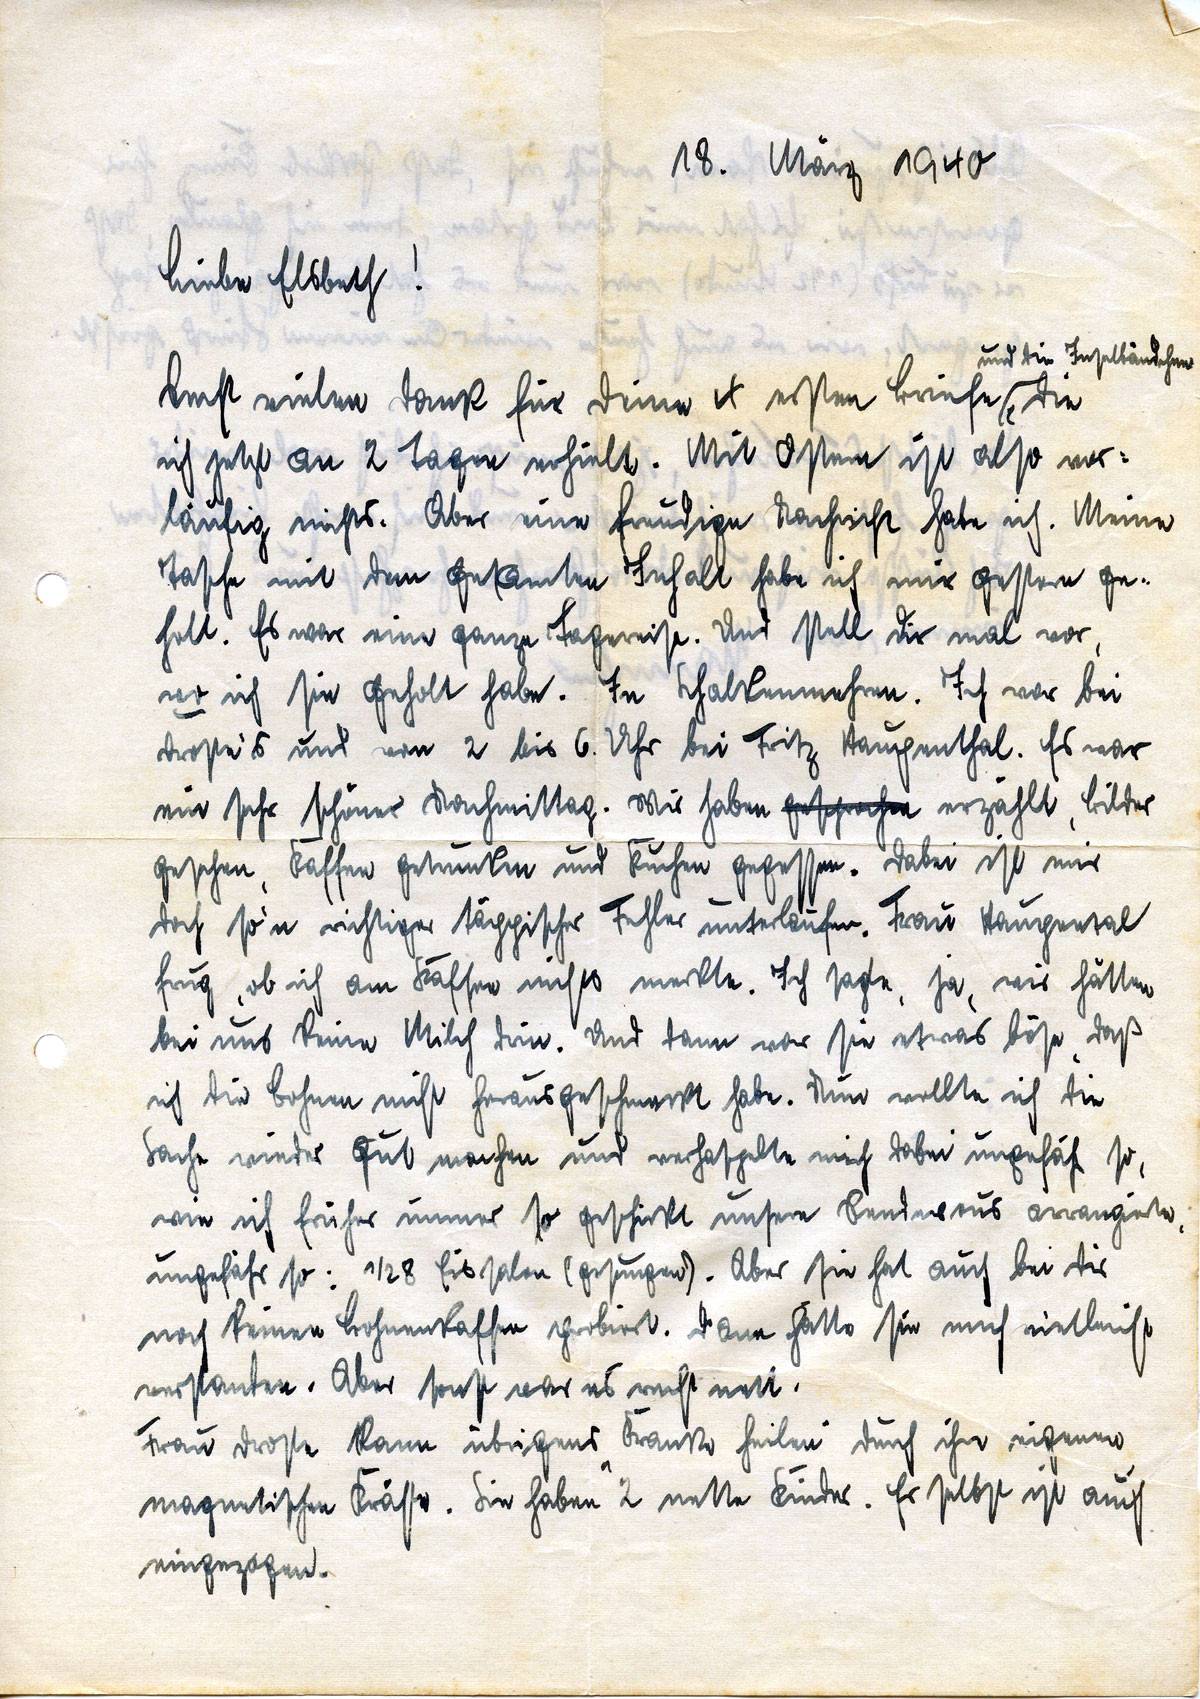 18. März 1940
Liebe Elsbeth!
und die Inselbändchen
Erst vielen Dank für Deine 4 ersten Briefe, die
ich jetzt an 2 Tagen erhielt. Mit Ostern ist also vor-
läufig nichts. Aber eine freudige Nachricht habe ich. Meine
Tasche mit dem gesamten Inhalt habe ich mir gestern ge-
holt. Es war eine ganze Tagereise. Und stell Dir mal vor,
wo ich sie geholt habe. In Schalkenmehren. Ich war bei
Droste's und von 2 bis 6 Uhr bei Fritz Haupenthal. Es war
ein sehr schöner Nachmittag. Wir haben gesprochen erzählt, Bilder
gesehen, Kaffee getrunken und Kuchen gegessen. Dabei ist mir
doch so'n richtiger täppischer Fehler unterlaufen. Frau Haupental
frug, ob ich am Kaffee nichts merkte. Ich sagte, ja, wir hätten
bei uns keine Milch drin. Und dann war sie etwas böse, daß
ich die Bohnen nicht herausgeschmeckt habe. Nun wollte ich die
Sache wieder gut machen und verhaspelte mich dabei ungefähr so,
wie ich früher immer so geschickt unsere Rendevous arrangierte,
ungefähr so: 1/28 Eissalon (gesungen). Aber sie hat auch bei Dir
noch keinen Bohnenkaffee probiert. Dann hätte sie mich vielleicht
verstanden. Aber sonst war es recht nett.
Frau Droste kann übrigens Kranke heilen durch ihre eigenen
magnetischen Kräfte. Sie haben 2 nette Kinder. Er selbst ist auch
eingezogen.